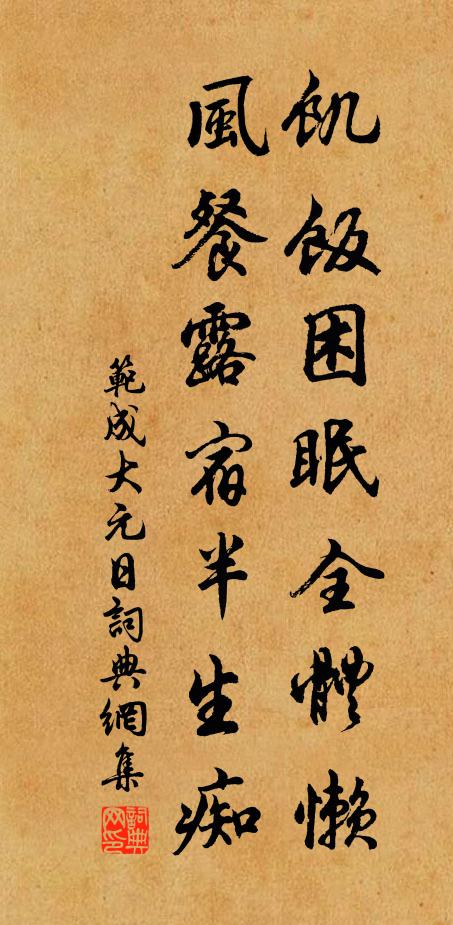 飢飯困眠全體懶
風餐露宿半生痴
範成大元日詞典網集
詞典网印